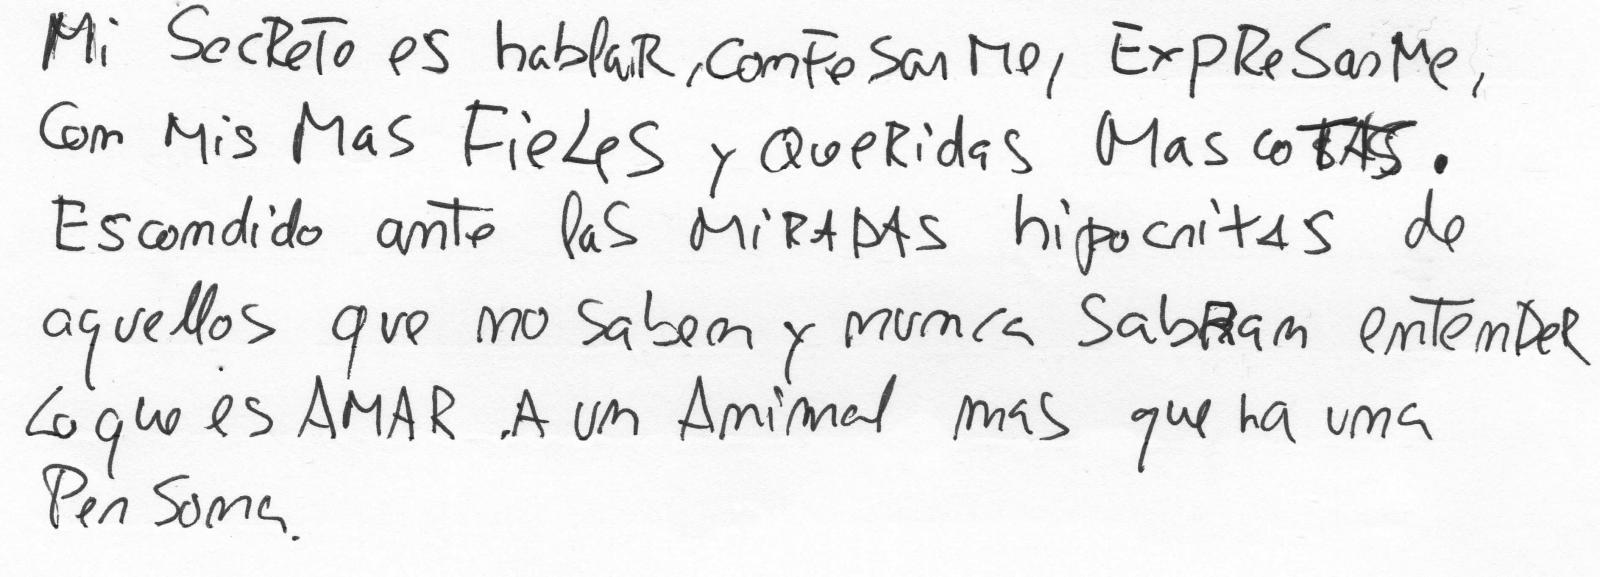 Mi Secreto es hablar, confesarme, Expresarme,
Con Mis Mas Fieles y Queridas Mascotas.
Escondido ante las MIRADAS hipocritas de
aquellos que no saben y nunca Sabran entender
Lo que es AMAR A un Animal mas que ha una
Persona.